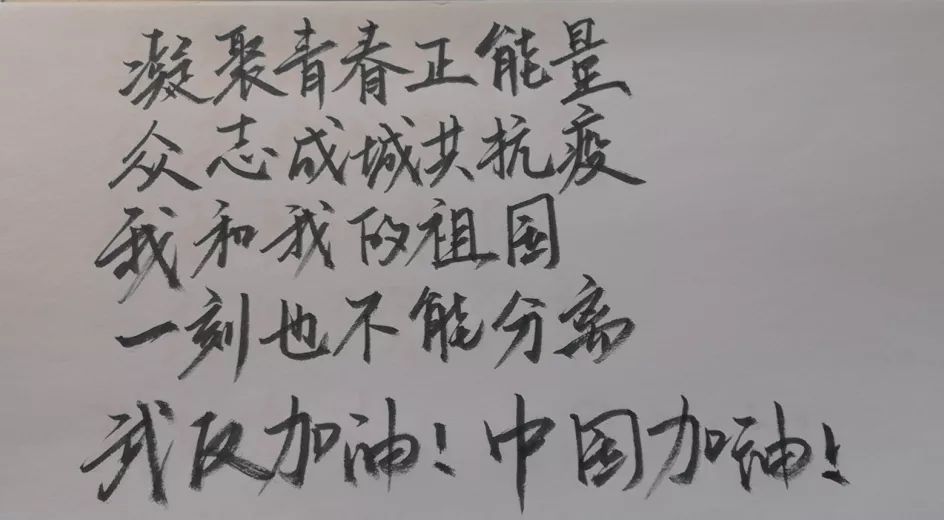 凝聚青春正能量
众志成城共抗疫
我和我的祖国
一刻也不能分离
武汉加油！中国加油！